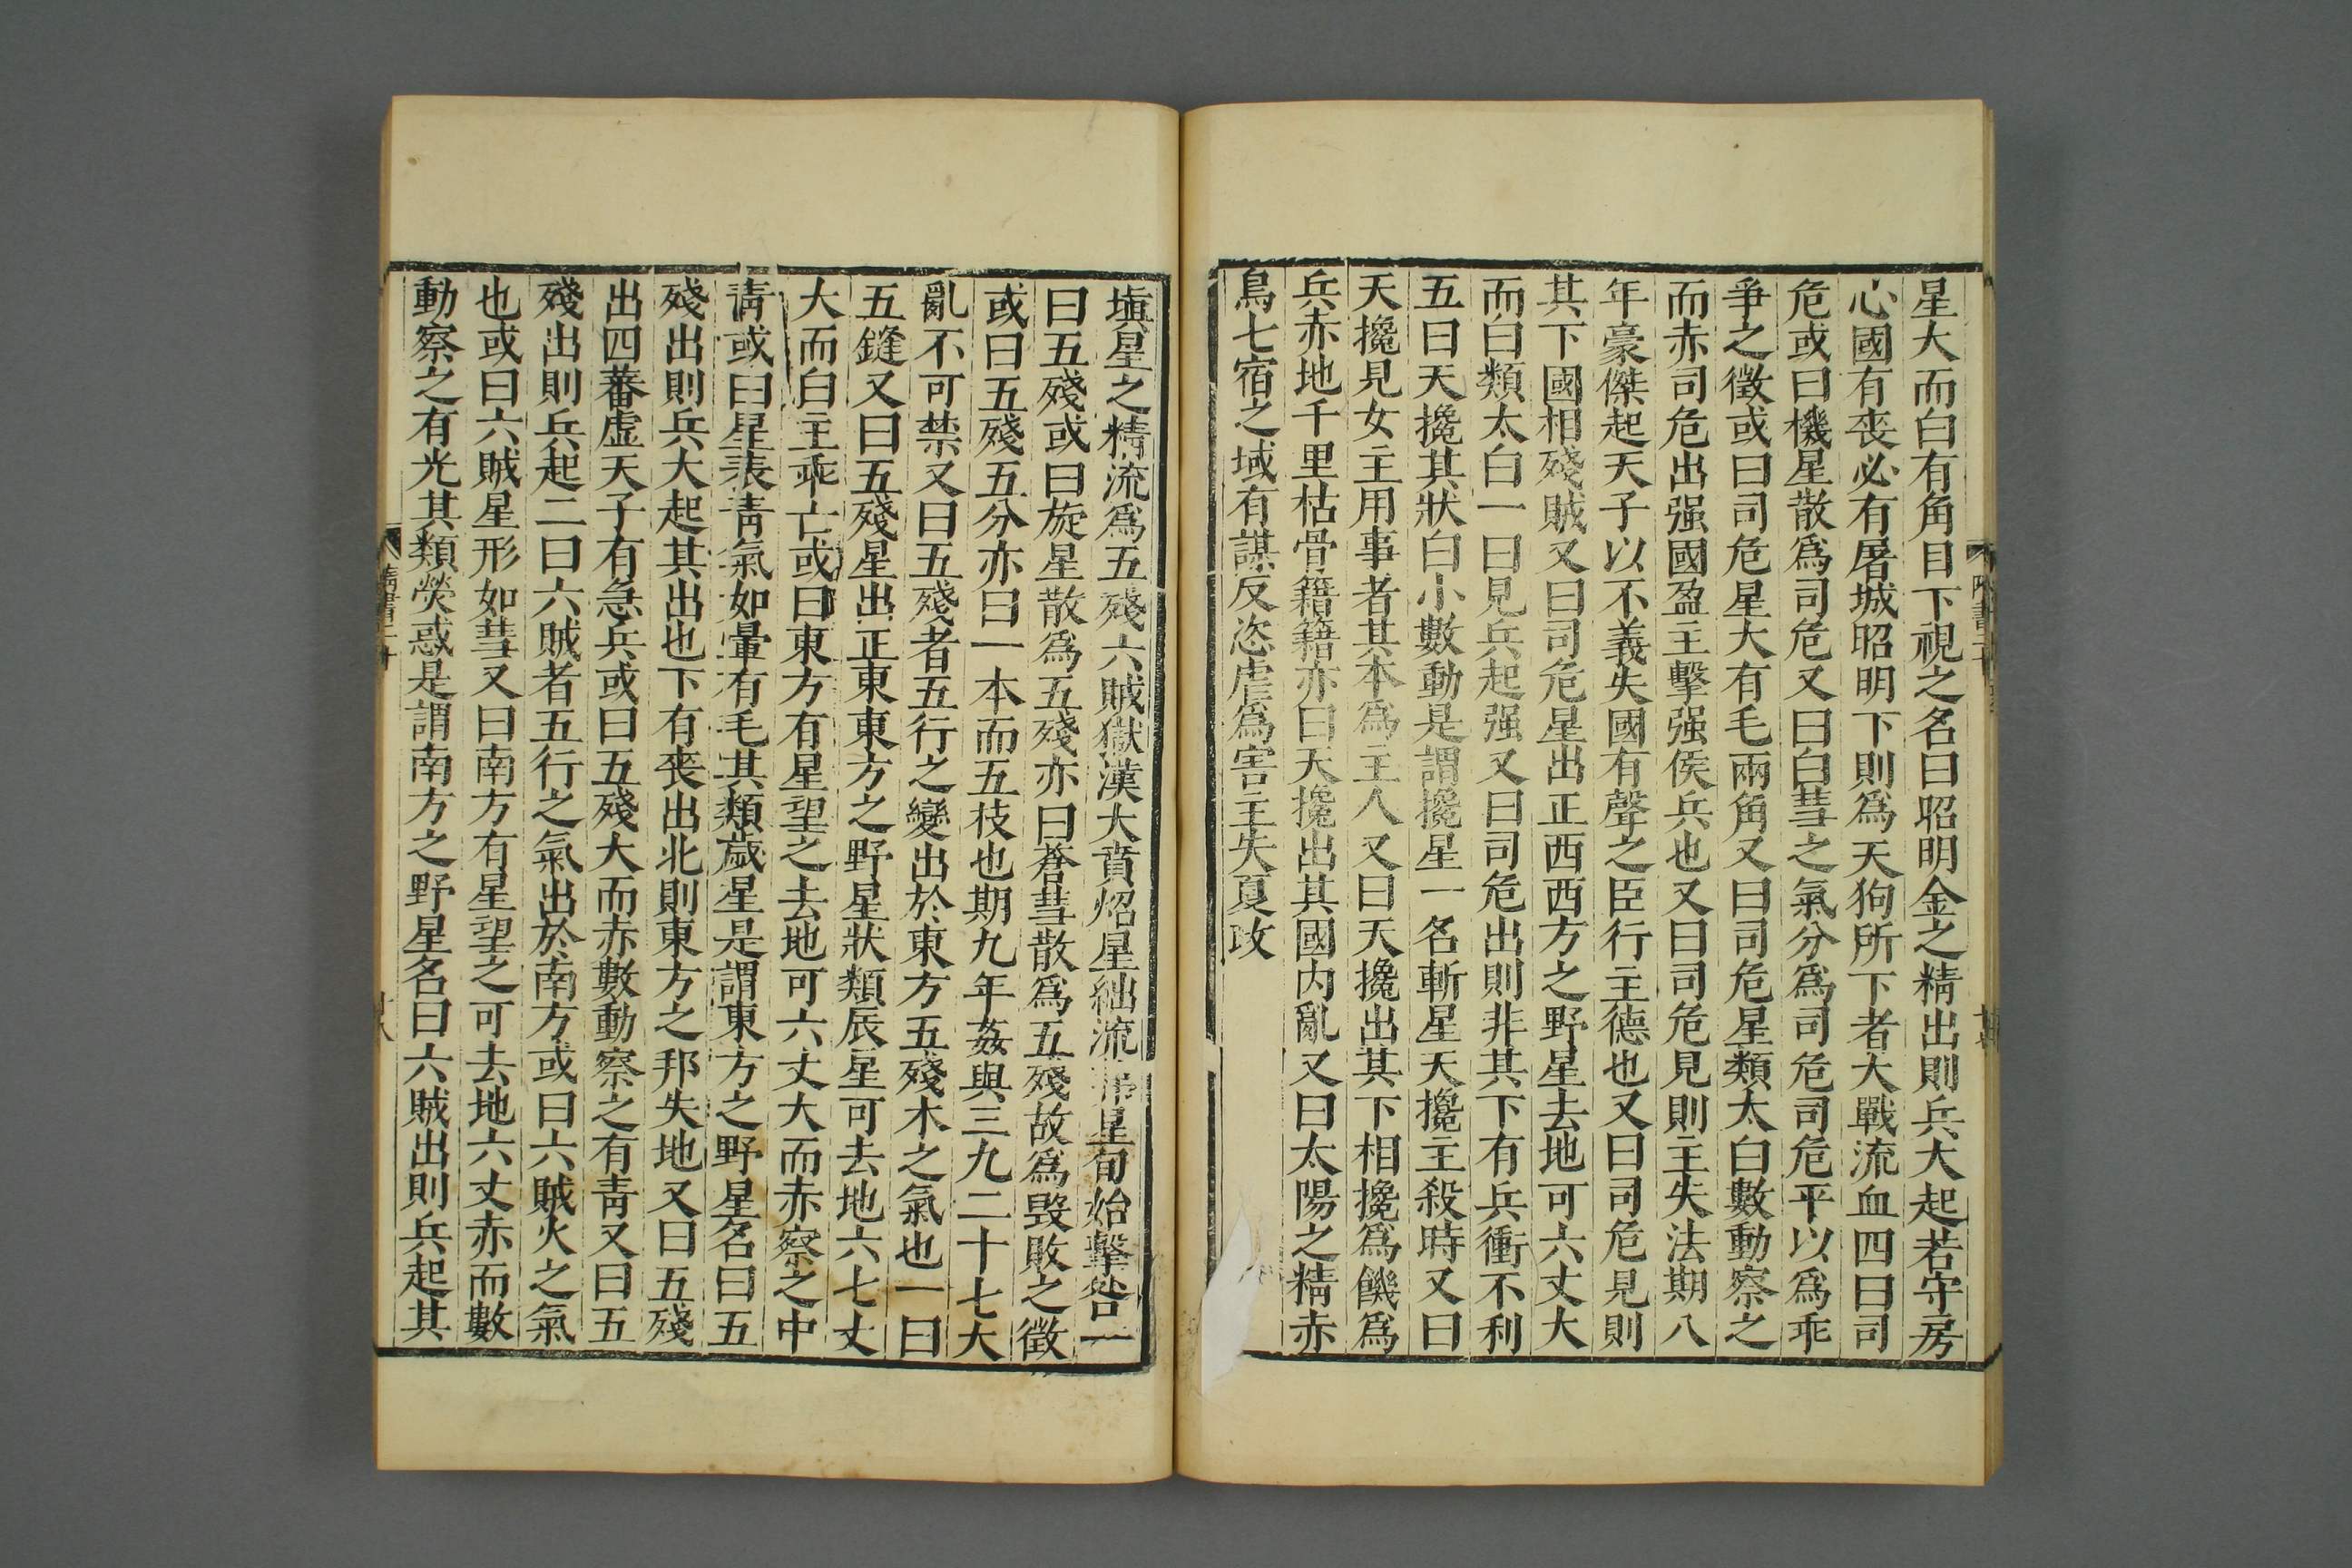 星大而白有角目下視之名曰昭明金之精出則兵大起若守房
心國有喪必有屠城昭明下則爲天狗所下者大戰流血四曰司
危或曰機星散爲司危又曰白彗之氣分爲司危司危平以爲乖
爭之徵或曰司危星大有毛兩角又曰司危星類太白數動察之
而赤司危出强國盈主擊强侯兵也又曰司危見則主失法期八
年豪傑起天子以不義失國有聲之臣行主德也又曰司危見則
其下國相殘賊又曰司危星出正西西方之野星去地可六丈大
而白類太白一曰見兵起强又曰司危出則非其下有兵衝不利
五曰天攙其狀白小數動是謂攙星一名斬星天攙主殺時又曰
天攙見女主用事者其本爲主人又曰天攙出其下相攙爲饑爲
兵赤地千里枯骨籍籍亦曰天攙出其國内亂又曰太陽之精赤
鳥七宿之域有謀反恣虐爲害主失夏政
塡星之精流爲五殘六賊獄漢大賁炤星絀流茀星旬始擊咎一
曰五殘或曰旋星散爲五殘亦曰蒼彗散爲五殘故爲毀敗之徵
或曰五殘五分亦曰一本而五枝也期九年姦與三九二十七大
亂不可禁又曰五殘者五行之變出於東方五殘木之氣也一曰
五鏠又曰五殘星出正東東方之野星狀類辰星可去地六七丈
大而白主乖亡或曰東方有星望之去地可六丈大而赤察之中
靑或曰星表靑氣如暈有毛其類歲星是謂東方之野星名曰五
殘出則兵大起其出也下有喪出北則東方之邦失地又曰五殘
出四蕃虛天子有急兵或曰五殘大而赤數動察之有靑又曰五
殘出則兵起二曰六賊者五行之氣出於南方或曰六賊火之氣
也或曰六賊星形如彗又曰南方有星望之可去地六丈赤而數
動察之有光其類熒惑是謂南方之野星名曰六賊出則兵起其